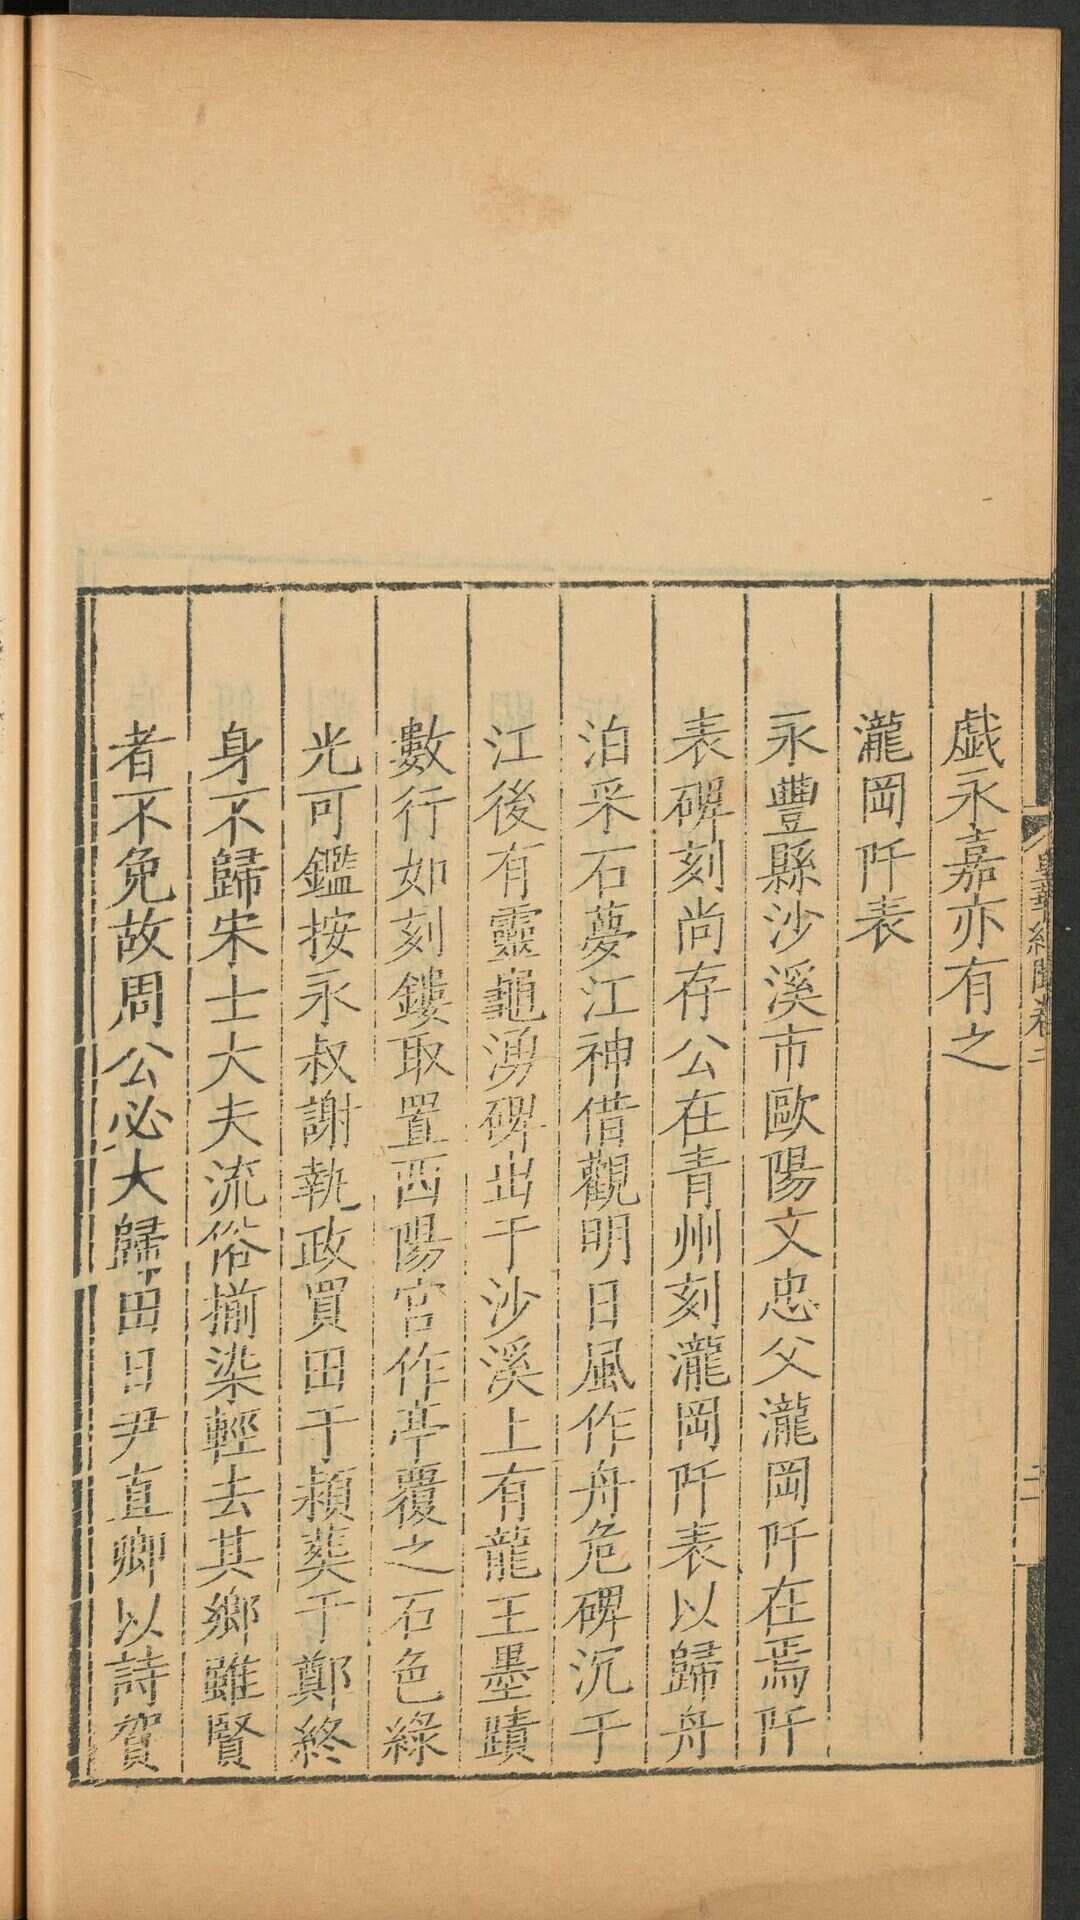 皇華紀聞卷二
二
戯永嘉亦有之
瀧岡阡表
永豐縣沙溪市歐陽文忠父瀧岡阡在焉阡
表碑刻尚存公在青州刻瀧岡阡表以歸舟
泊采石夢江神借觀明日風作舟危碑沉于
江後有靈龜湧碑出于沙溪上有龍王墨蹟
數行如刻鏤取置西陽宮作亭覆之石色綠
光可鑑按永叔謝執政買田于潁葬于鄭終
身不歸宋士大夫流俗搠染輕去其鄉雖賢
者不免故周公必大歸田日尹直卿以詩賀